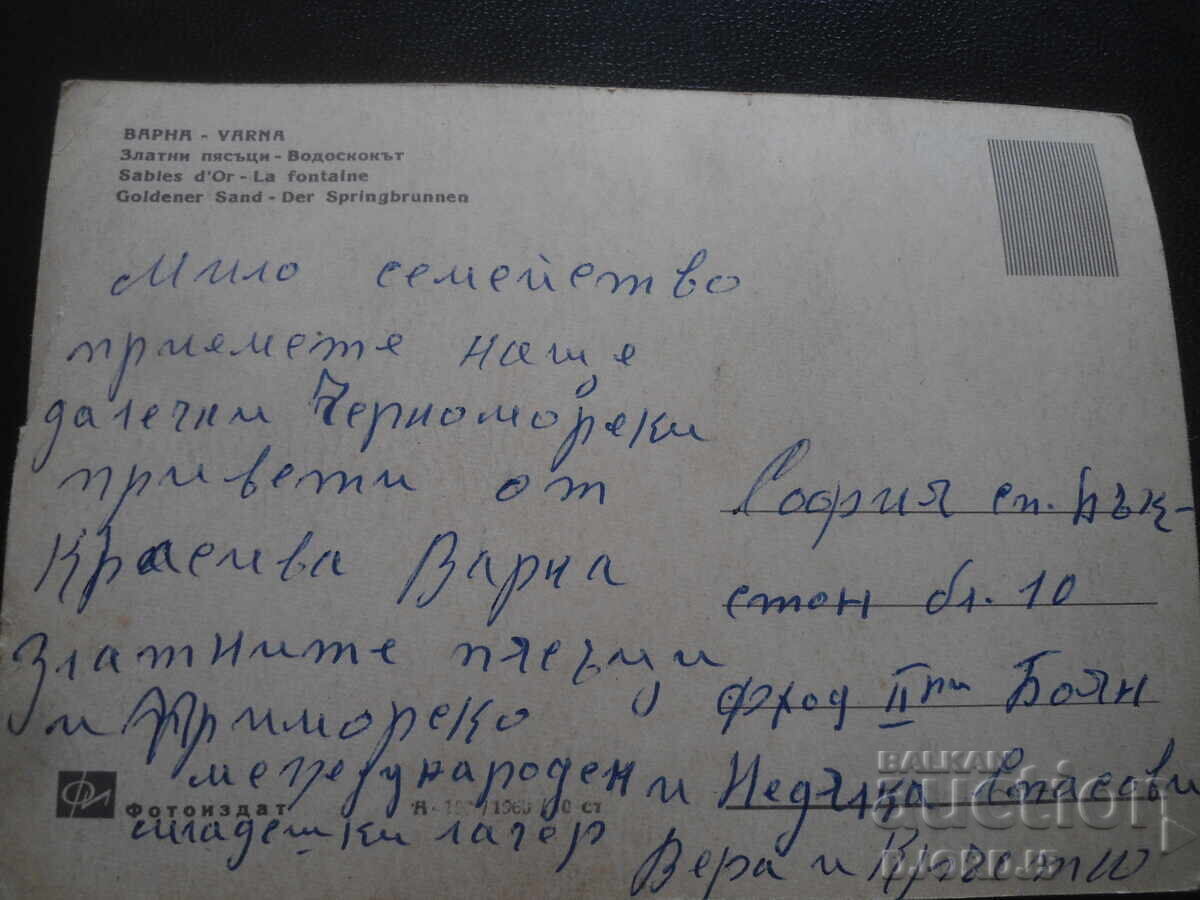 ВАРНА - VARNA
Златни пясъци - Водоскокът
Sables d'Or - La fontaine
Goldener Sand - Der Springbrunnen
Мило семейство
приемете наще
далечни Черноморски
привети от
Красива Варна
Златните пясъци
и Приморско
международен
младешки лагер
София сп. Бък-
стон бл. 10
фход II при Боян
и Недялка Власови
Вера и Кръстю
Фотоиздат
BALKAN
auction
DJORDJ5